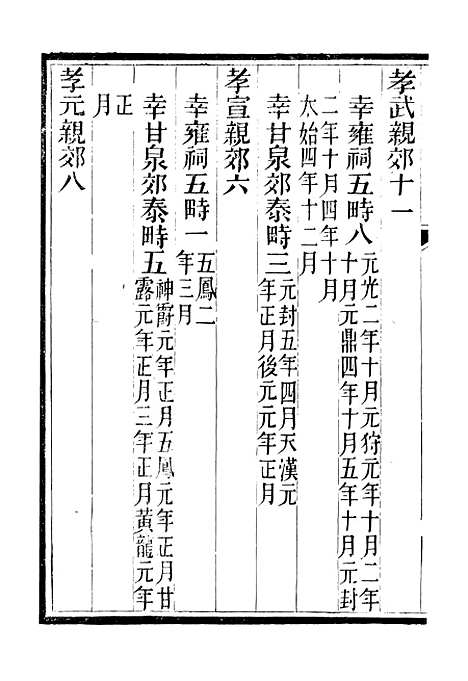 孝武親郊十一
幸雍祠五畤八元光二年十月元狩元年十月二年
十月元鼎四年十月五年十月元封
二年十月四年十月
太始四年十二月
幸甘泉郊泰畤三元封五年四月天漢元
年正月後元元年正月
孝宣親郊六
幸雍祠五畤一五鳳二
年三月
幸甘泉郊泰畤五神爵元年正月五鳳元年正月甘
露元年正月三年正月黃龍元年
正
月
孝元親郊八